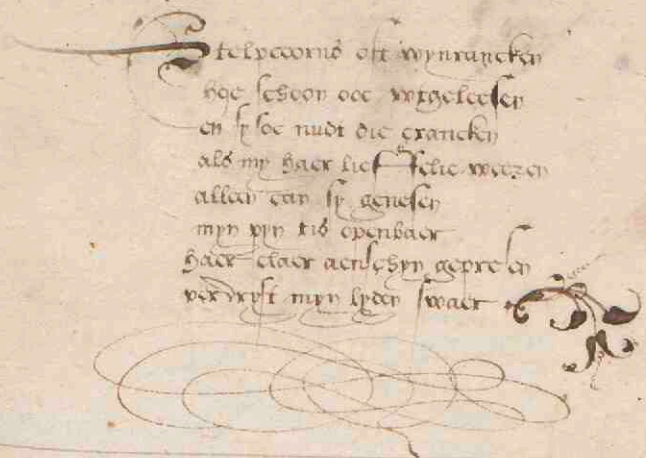 oft wynrancken
hoe schoon ooc wtgeleesen
en sy soe nudt die crancken
als my haer lieffelic weezen
alleen can sy genesen
myn pyn tis openbaer
haer claer aenschyn gepresen
verdryft myn lyden swaer